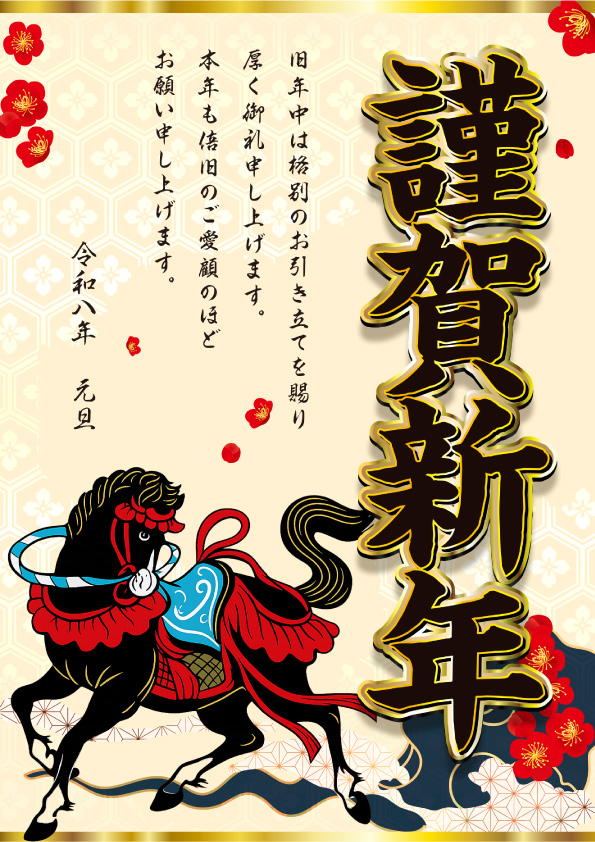 謹賀新年
旧年中は格別のお引き立てを賜り
厚く御礼申し上げます。
本年も倍旧のご愛顧のほど
お願い申し上げます。
令和八年　元旦